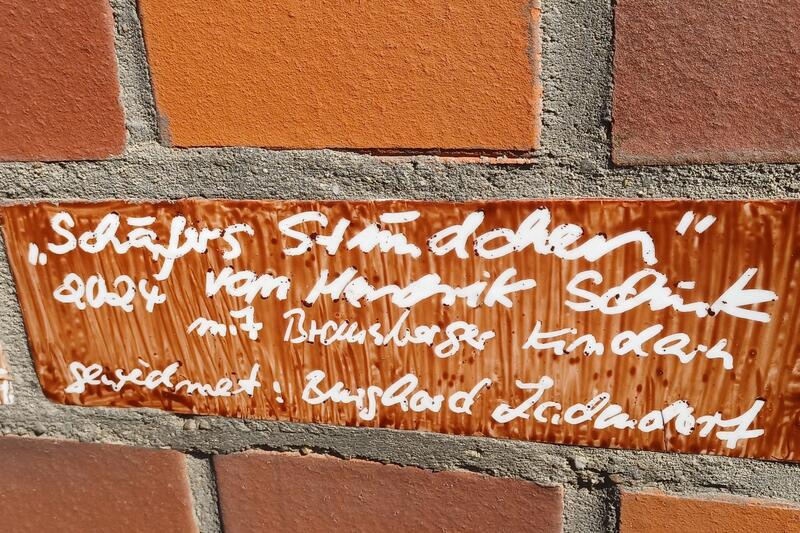 „Schäfers Stündchen"
2024 von Hendrik Schink
mit Bramsberger Kindern
gewidmet: Burghard Ladendorf